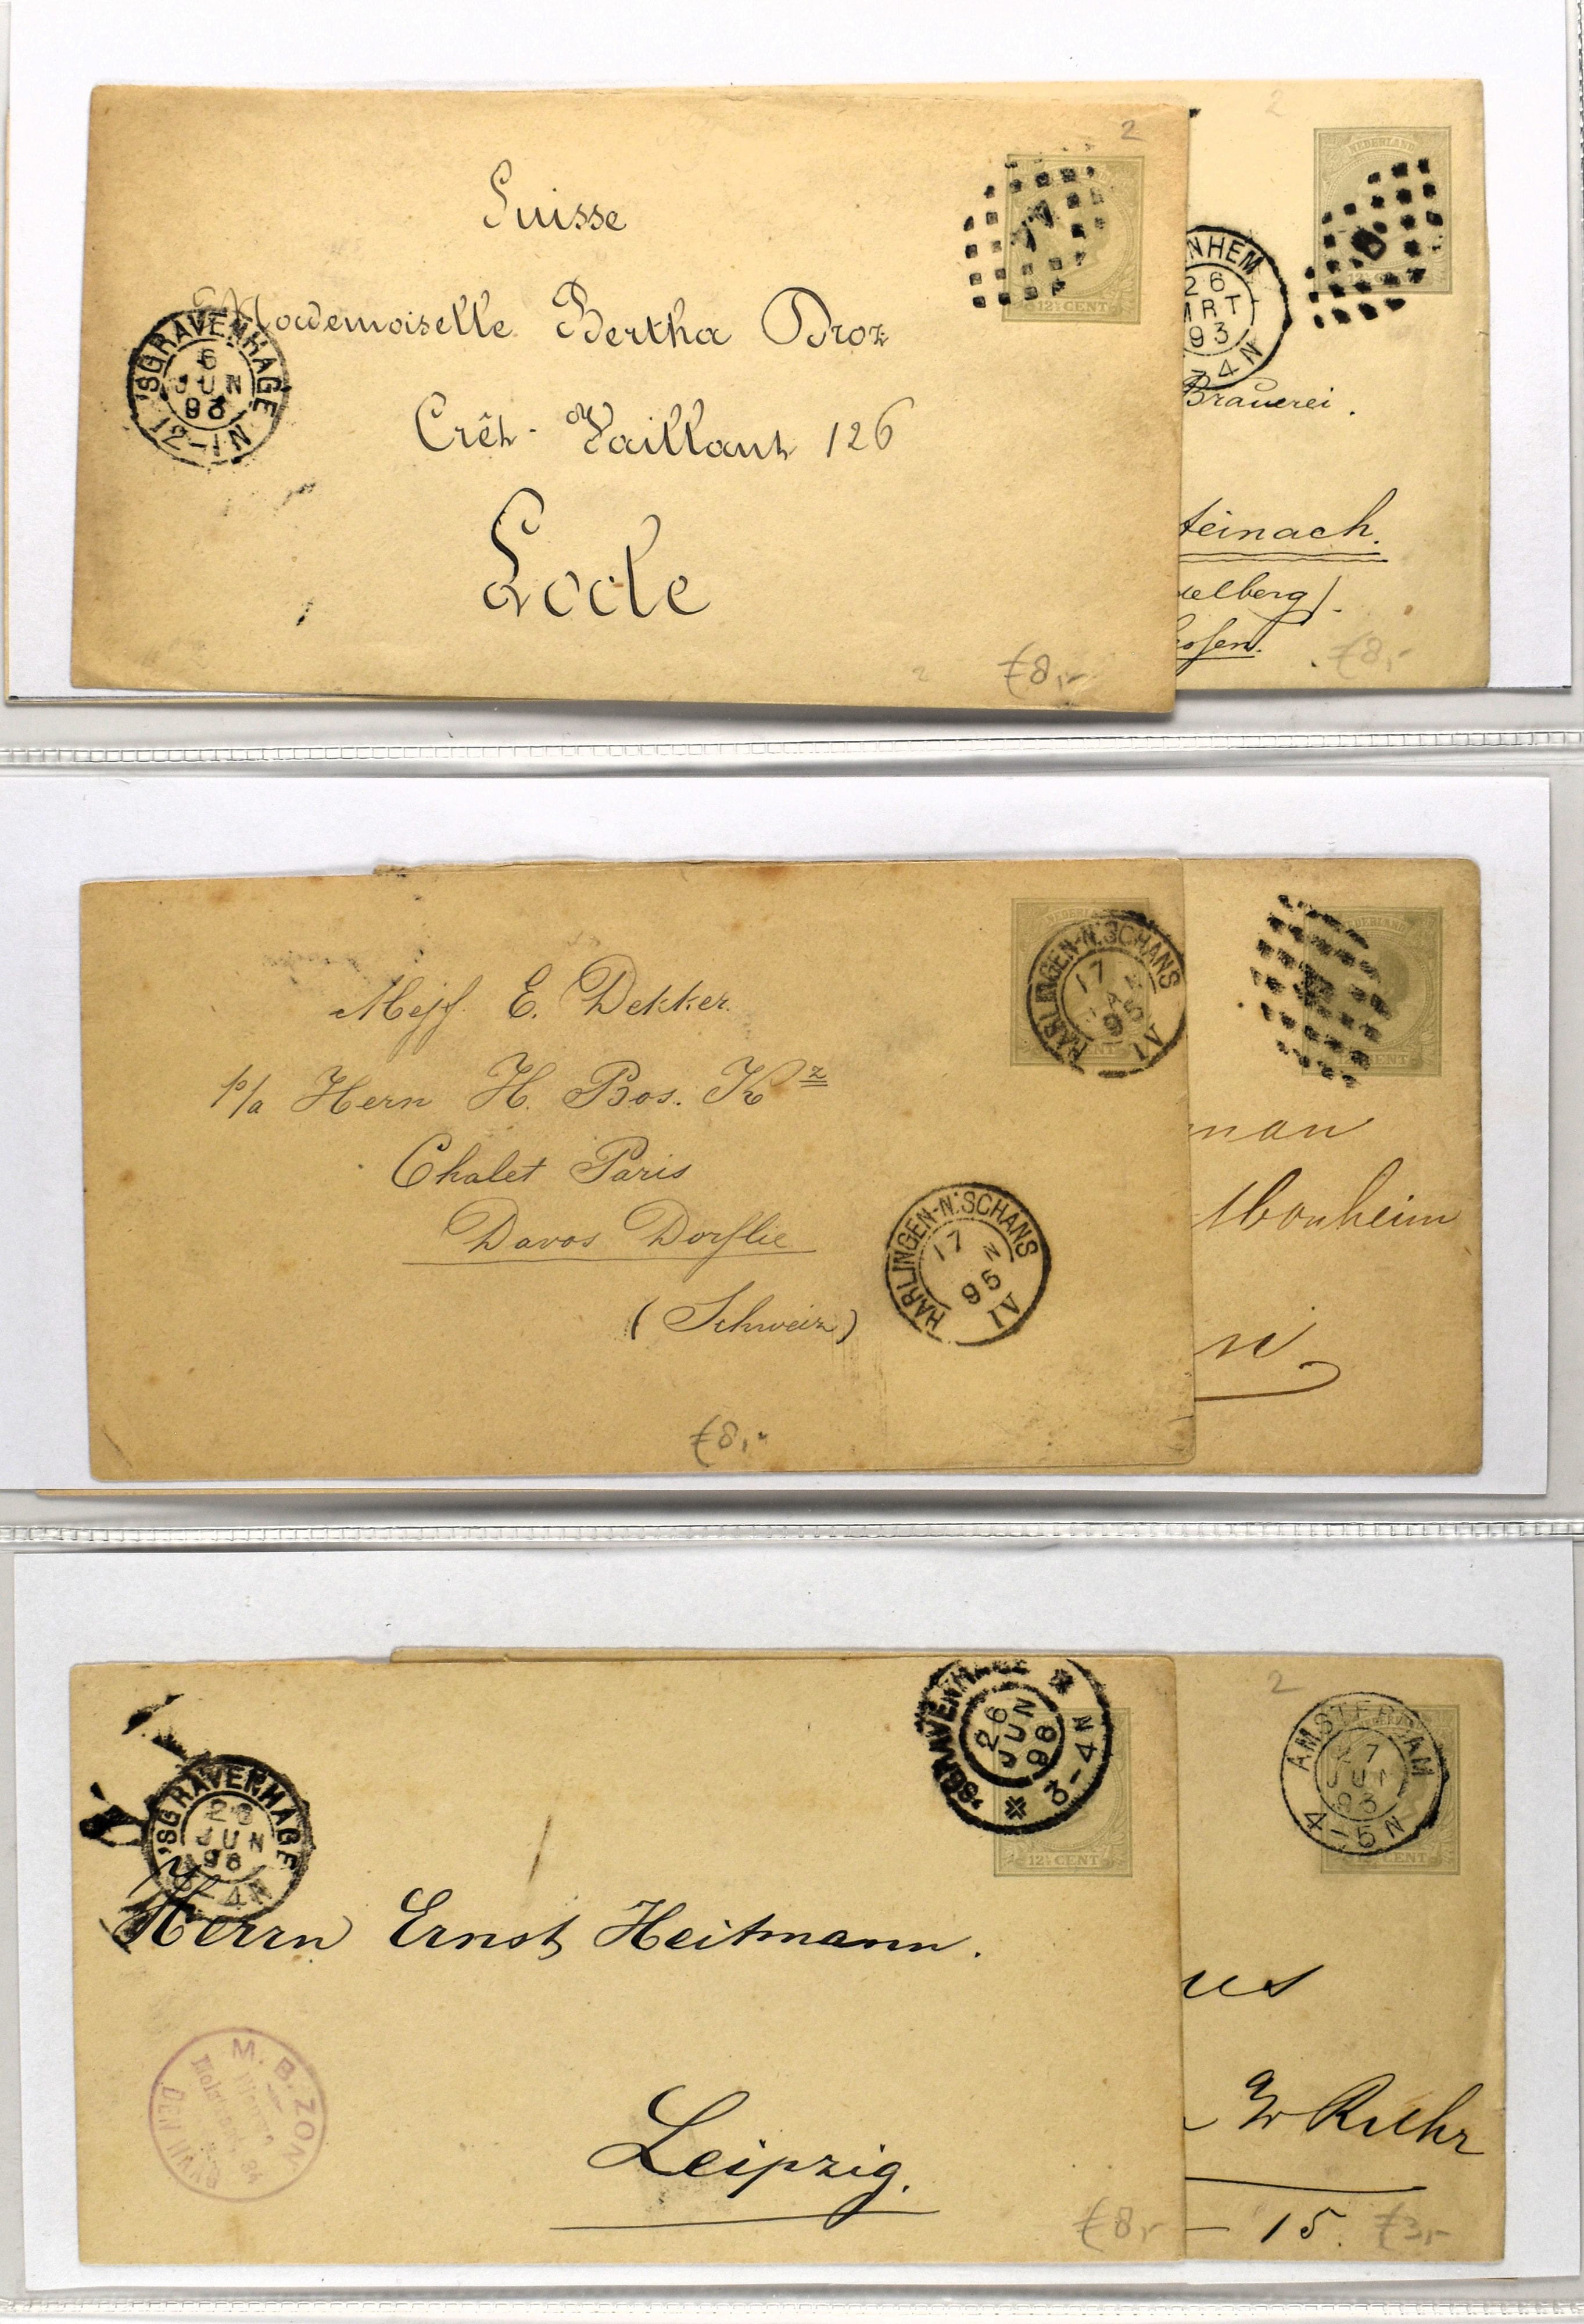 2
Suisse
Mademoiselle Bertha Droz
Crêt-Vaillant 126
Locle
'SGRAVENHAGE
6
JUN
93
12-1N
12½ CENT
€8,-
2
NEDERLAND
NHEM
26
MRT
93
-4N
Brauerei.
teinach.
elberg).
€8,-
Mejf. E. Dekker.
p/a Hern H. Bos. Kz
Chalet Paris
Davos Dorflie
(Schweiz)
NEDERLAND
HARLINGEN-N:SCHANS
17
95
IV
HARLINGEN-N:SCHANS
17 N
95
IV
€8,-
NEDERLAND
CENT
man
Monheim
'SGRAVENHAGE
26
JUN
98
3-4N
12½ CENT
'SGRAVENHAGE
26
JUN
98
4N
Herrn Ernst Heitmann.
Leipzig.
M. B. ZON
DEN
€8,-
2
AMSTERDAM
7
JUN
93
4-5N
CENT
us
a/w Ruhr
15.
€3,-